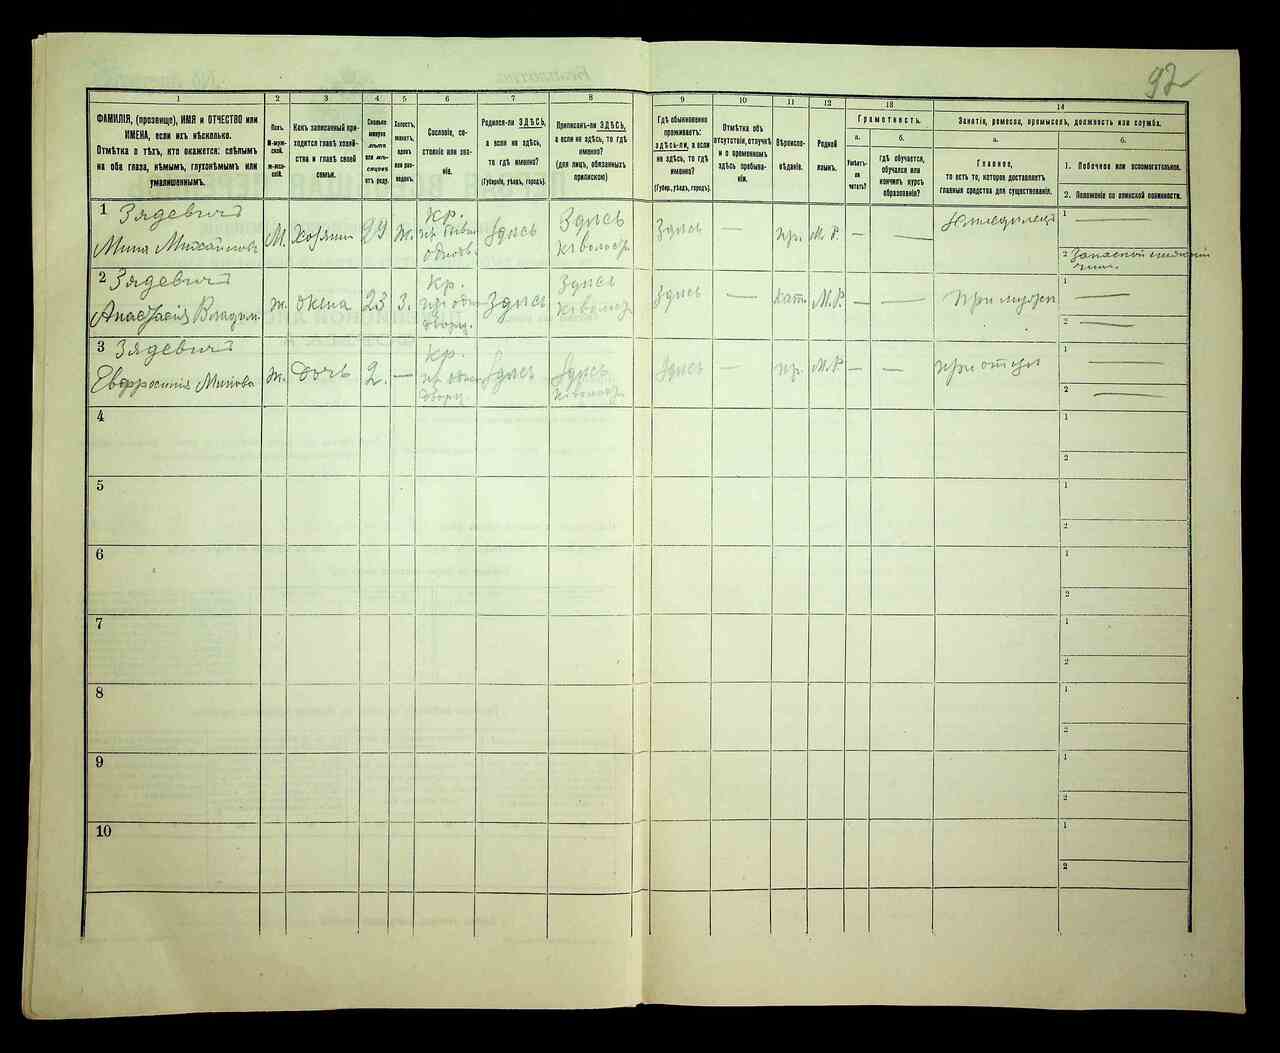 92
1
2
3
4
5
6
7
8
9
10
11
12
13
14
ФАМИЛІЯ, (прозвище), ИМЯ и ОТЧЕСТВО или
ИМЕНА, если ихъ нѣсколько.
Отмѣтка о тѣхъ, кто окажется: слѣпымъ
на оба глаза, нѣмымъ, глухонѣмымъ или
умалишеннымъ.
Полъ.
М-муж-
ской.
Ж-жен-
скій.
Какъ записанный при-
ходится главѣ хозяй-
ства и главѣ своей
семьи.
Сколько
минуло
лѣтъ
или мѣ-
сяцевъ
отъ роду.
Холостъ,
женатъ,
вдовъ
или раз-
веденъ.
Сословіе, со-
стояніе или зва-
ніе.
Родился-ли ЗДѢСЬ,
а если не здѣсь,
то гдѣ именно?
(Губернія, уѣздъ, городъ).
Приписанъ-ли ЗДѢСЬ,
а если не здѣсь, то гдѣ
именно?
(для лицъ, обязанныхъ
припискою)
Гдѣ обыкновенно
проживаетъ:
здѣсь-ли, а если
не здѣсь, то гдѣ
именно?
(Губер., уѣздъ, городъ).
Отмѣтка объ
отсутствіи, отлучкѣ
и о временномъ
здѣсь пребыва-
ніи.
Вѣроиспо-
вѣданіе.
Родной
языкъ.
Грамотность.
а.
Умѣетъ-
ли
читать?
б.
гдѣ обучается,
обучался или
кончилъ курсъ
образованія?
Занятіе, ремесло, промыселъ, должность или служба.
а.
Главное,
то есть то, которое доставляетъ
главныя средства для существованія.
б.
1. Побочное или вспомогательное.
2. Положеніе по воинской повинности.
1 Зядевичъ
Мина Михайловъ М. хозяинъ 29 ж. кр. Здѣсь Здѣсь Здѣсь — пр. М.Р. — — Земледѣлецъ 1 —
2 Запасной
2 Зядевичъ
Анастасія Владим. ж. жена 23 З. кр. Здѣсь Здѣсь Здѣсь — кат. М.Р. — — При мужѣ 1 —
2 —
3 Зядевичъ
Евфросинія Минова ж. дочь 2. — кр. Здѣсь Здѣсь Здѣсь — пр. М.Р. — — при отцѣ 1 —
2 —
4 1
2
5 1
2
6 1
2
7 1
2
8 1
2
9 1
2
10 1
2